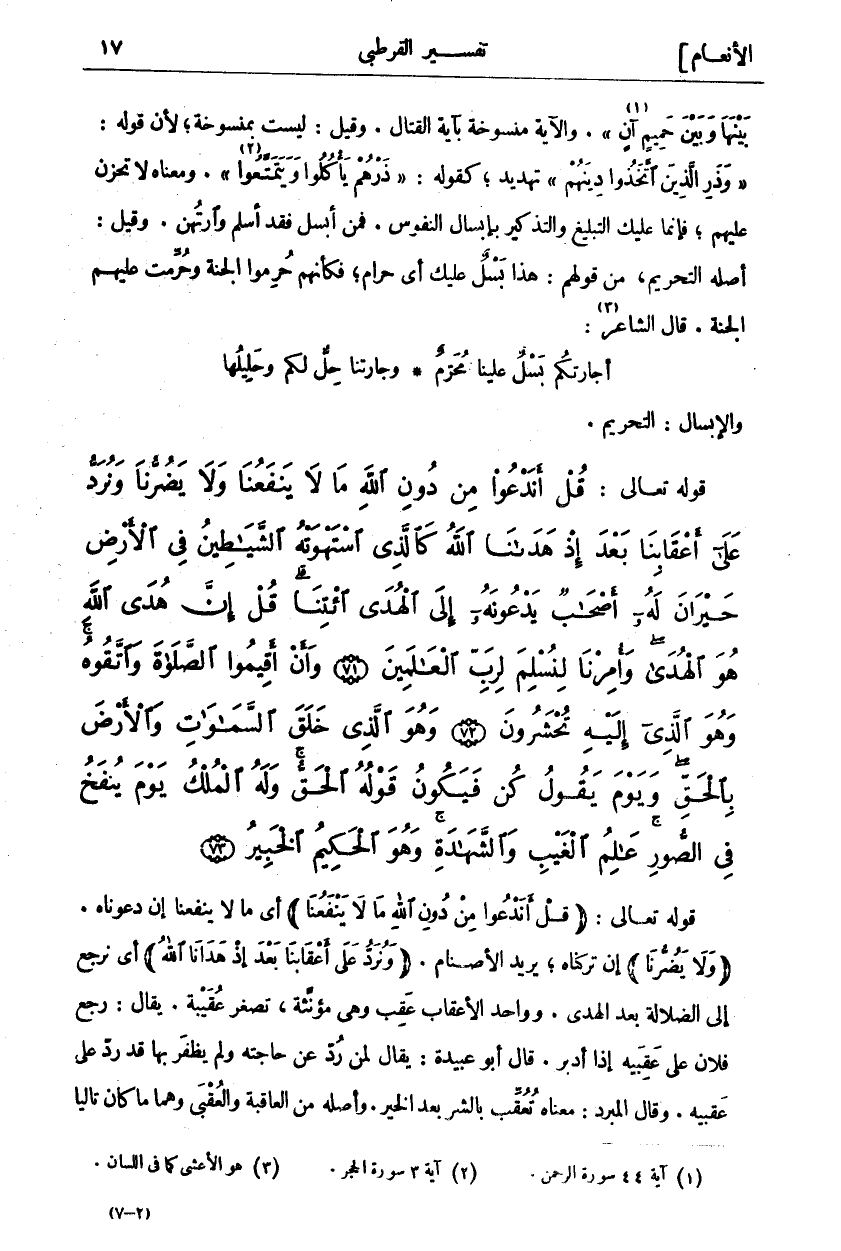 الأنعام] تفسير القرطبى ١٧
بَيْنَهَا وَبَيْنَ حَمِيمٍ آنٍ (١) » . والآية منسوخة بآية القتال . وقيل : ليست بمنسوخة ؛ لأن قوله :
« وَذَرِ الَّذِينَ ٱتَّخَذُوا دِينَهُمْ » تهديد ؛ كقوله : « ذَرْهُمْ يَأْكُلُوا وَيَتَمَتَّعُوا (٢) » . ومعناه لا تحزن
عليهم ؛ فإنما عليك التبليغ والتذكير بإبسال النفوس . فمن أبسل فقد أسلم وٱرتُهن . وقيل :
أصله التحريم، من قولهم : هذا بَسْلٌ عليك أى حرام ؛ فكأنهم حُرِموا الجنة وحُرِّمت عليهم
الجنة . قال الشاعر (٣) :
أجارتكُم بَسْلٌ علينا مُحَرَّمٌ * وجارتنا حِلٌّ لكم وحَلِيلُها
والإبسال : التحريم .
قوله تعالى : قُلْ أَنَدْعُوا۟ مِن دُونِ ٱللَّهِ مَا لَا يَنفَعُنَا وَلَا يَضُرُّنَا وَنُرَدُّ
عَلَىٰٓ أَعْقَابِنَا بَعْدَ إِذْ هَدَىٰنَا ٱللَّهُ كَٱلَّذِى ٱسْتَهْوَتْهُ ٱلشَّيَـٰطِينُ فِى ٱلْأَرْضِ
حَيْرَانَ لَهُۥٓ أَصْحَـٰبٌ يَدْعُونَهُۥٓ إِلَى ٱلْهُدَى ٱئْتِنَا ۗ قُلْ إِنَّ هُدَى ٱللَّهِ
هُوَ ٱلْهُدَىٰ ۖ وَأُمِرْنَا لِنُسْلِمَ لِرَبِّ ٱلْعَـٰلَمِينَ ٧١ وَأَنْ أَقِيمُوا ٱلصَّلَوٰةَ وَٱتَّقُوهُ ۚ
وَهُوَ ٱلَّذِىٓ إِلَيْهِ تُحْشَرُونَ ٧٢ وَهُوَ ٱلَّذِى خَلَقَ ٱلسَّمَـٰوَٰتِ وَٱلْأَرْضَ
بِٱلْحَقِّ ۖ وَيَوْمَ يَقُولُ كُن فَيَكُونُ ۚ قَوْلُهُ ٱلْحَقُّ ۚ وَلَهُ ٱلْمُلْكُ يَوْمَ يُنفَخُ
فِى ٱلصُّورِ ۚ عَـٰلِمُ ٱلْغَيْبِ وَٱلشَّهَـٰدَةِ ۚ وَهُوَ ٱلْحَكِيمُ ٱلْخَبِيرُ ٧٣
قوله تعالى : ﴿ قُلْ أَنَدْعُوا مِنْ دُونِ ٱللهِ مَا لَا يَنْفَعُنَا ﴾ أى ما لا ينفعنا إن دعوناه .
﴿ وَلَا يَضُرُّنَا ﴾ إن تركناه ؛ يريد الأصنام . ﴿ وَنُرَدُّ عَلَى أَعْقَابِنَا بَعْدَ إِذْ هَدَانَا ٱللهُ ﴾ أى نرجع
إلى الضلالة بعد الهدى . وواحد الأعقاب عَقِب وهى مؤنَّثة ، تصغر عُقَيْبة . يقال : رجع
فلان على عَقِبيه إذا أدبر . قال أبو عبيدة : يقال لمن رُدّ عن حاجته ولم يظفَر بها قد ردّ على
عَقبيه . وقال المبرد : معناه تُعُقِّب بالشر بعد الخير . وأصله من العاقبة والعُقْبَى وهما ما كان تاليا
(١) آية ٤٤ سورة الرحمن . (٢) آية ٣ سورة الحجر . (٣) هو الأعشى كما فى اللسان .
(٧–٢)